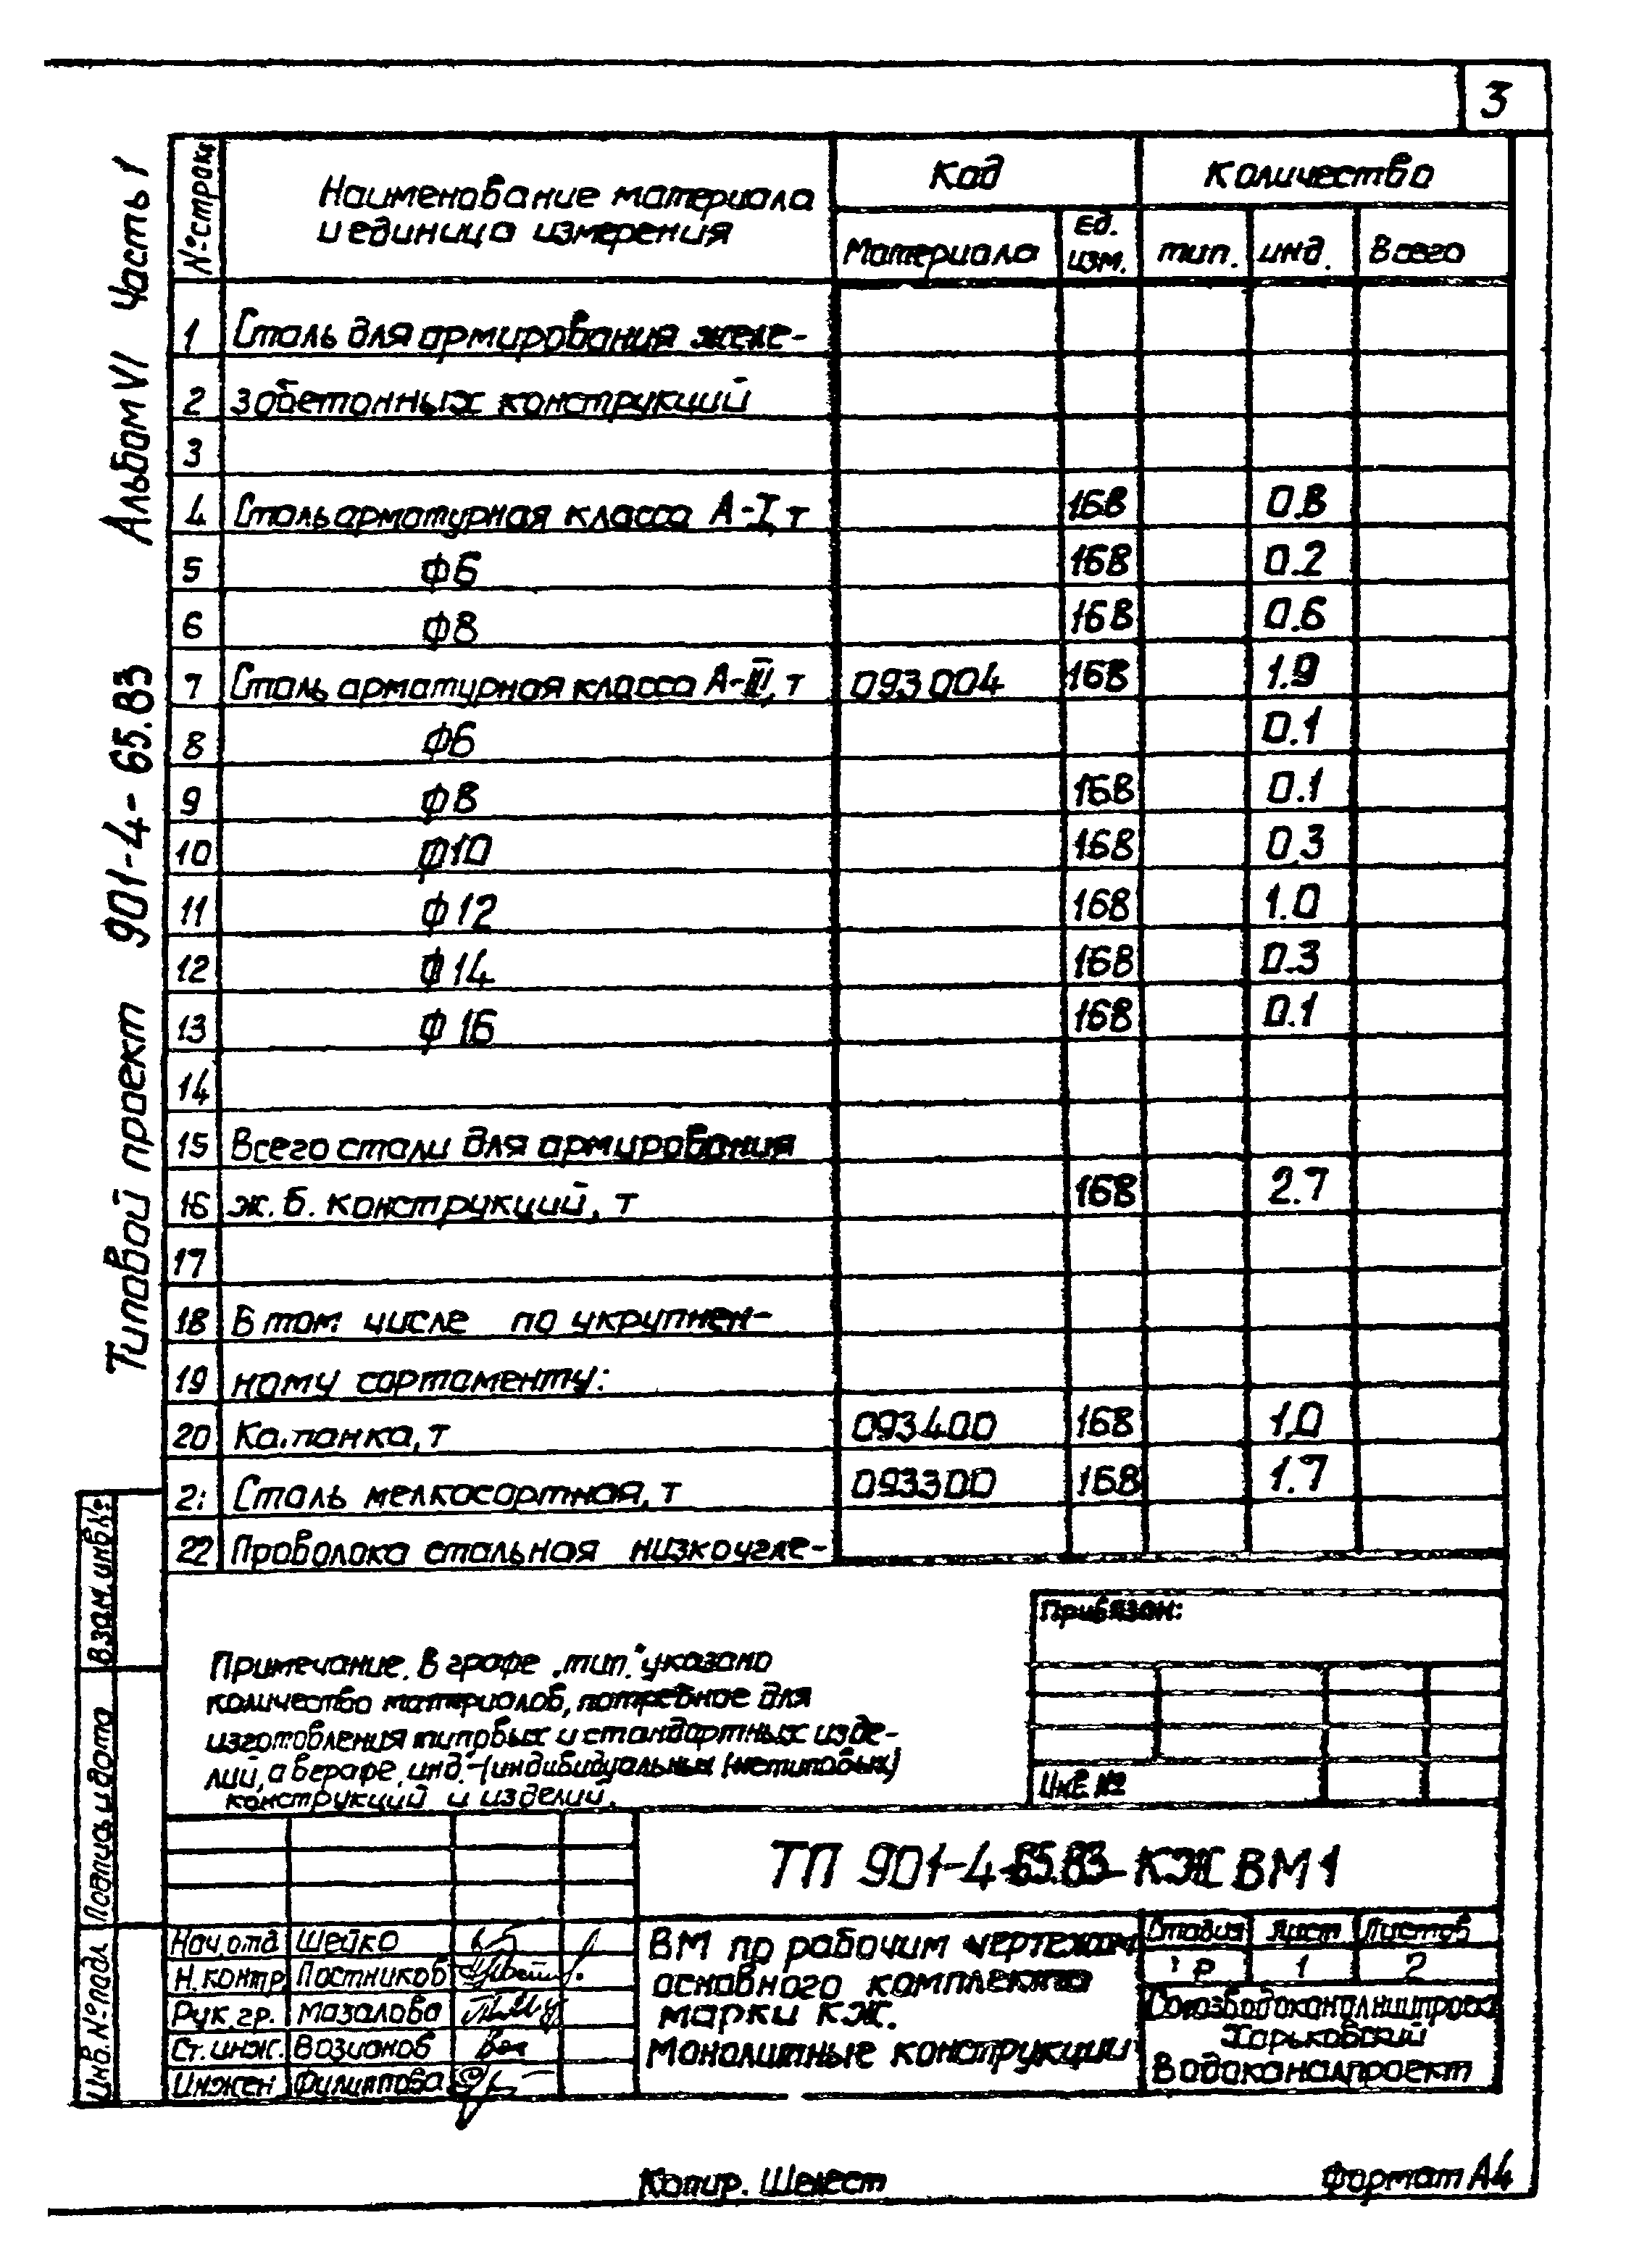 3
Типовой проект 901-4-65.83 Альбом VI Часть 1
№ строк
Наименование материала
и единица измерения
Код
Количество
Материала
Ед.
изм.
тип.
инд.
Всего
1 Сталь для армирования желе-
2 зобетонных конструкций
3
4 Сталь арматурная класса А-I, т 168 0.8
5 Ф6 168 0.2
6 Ф8 168 0.6
7 Сталь арматурная класса А-III, т 093004 168 1.9
8 Ф6 0.1
9 Ф8 168 0.1
10 Ф10 168 0.3
11 Ф12 168 1.0
12 Ф14 168 0.3
13 Ф16 168 0.1
14
15 Всего стали для армирования
16 ж.б. конструкций, т 168 2.7
17
18 В том числе по укрупнен-
19 ному сортаменту:
20 Катанка, т 093400 168 1,0
21 Сталь мелкосортная, т 093300 168 1.7
22 Проволока стальная низкоугле-
Примечание. В графе „тип." указано
количество материалов, потребное для
изготовления типовых и стандартных изде-
лий, а в графе „инд."-(индивидуальных (нетиповых)
конструкций и изделий.
Привязан:
Инв. №
Взам. инв. №
Подпись и дата
Инв. № подл
ТП 901-4-65.83-КЖ ВМ1
Нач.отд Шейко
Н.контр. Постников
Рук.гр. Мазалова
Ст.инж. Возианов
Инжен Филиппова
ВМ по рабочим чертежам
основного комплекта
марки КЖ.
Монолитные конструкции
Стадия Лист Листов
Р 1 2
Союзводоканалниипроект
Харьковский
Водоканалпроект
Копир. Шелест
Формат А4